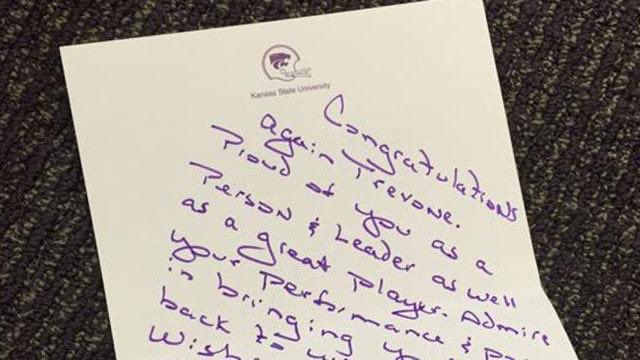 Kansas State University
Congratulations
again Trevone.
Proud of you as a
Person & Leader as well
as a great player. Admire
your Performance &
in bringing
back to